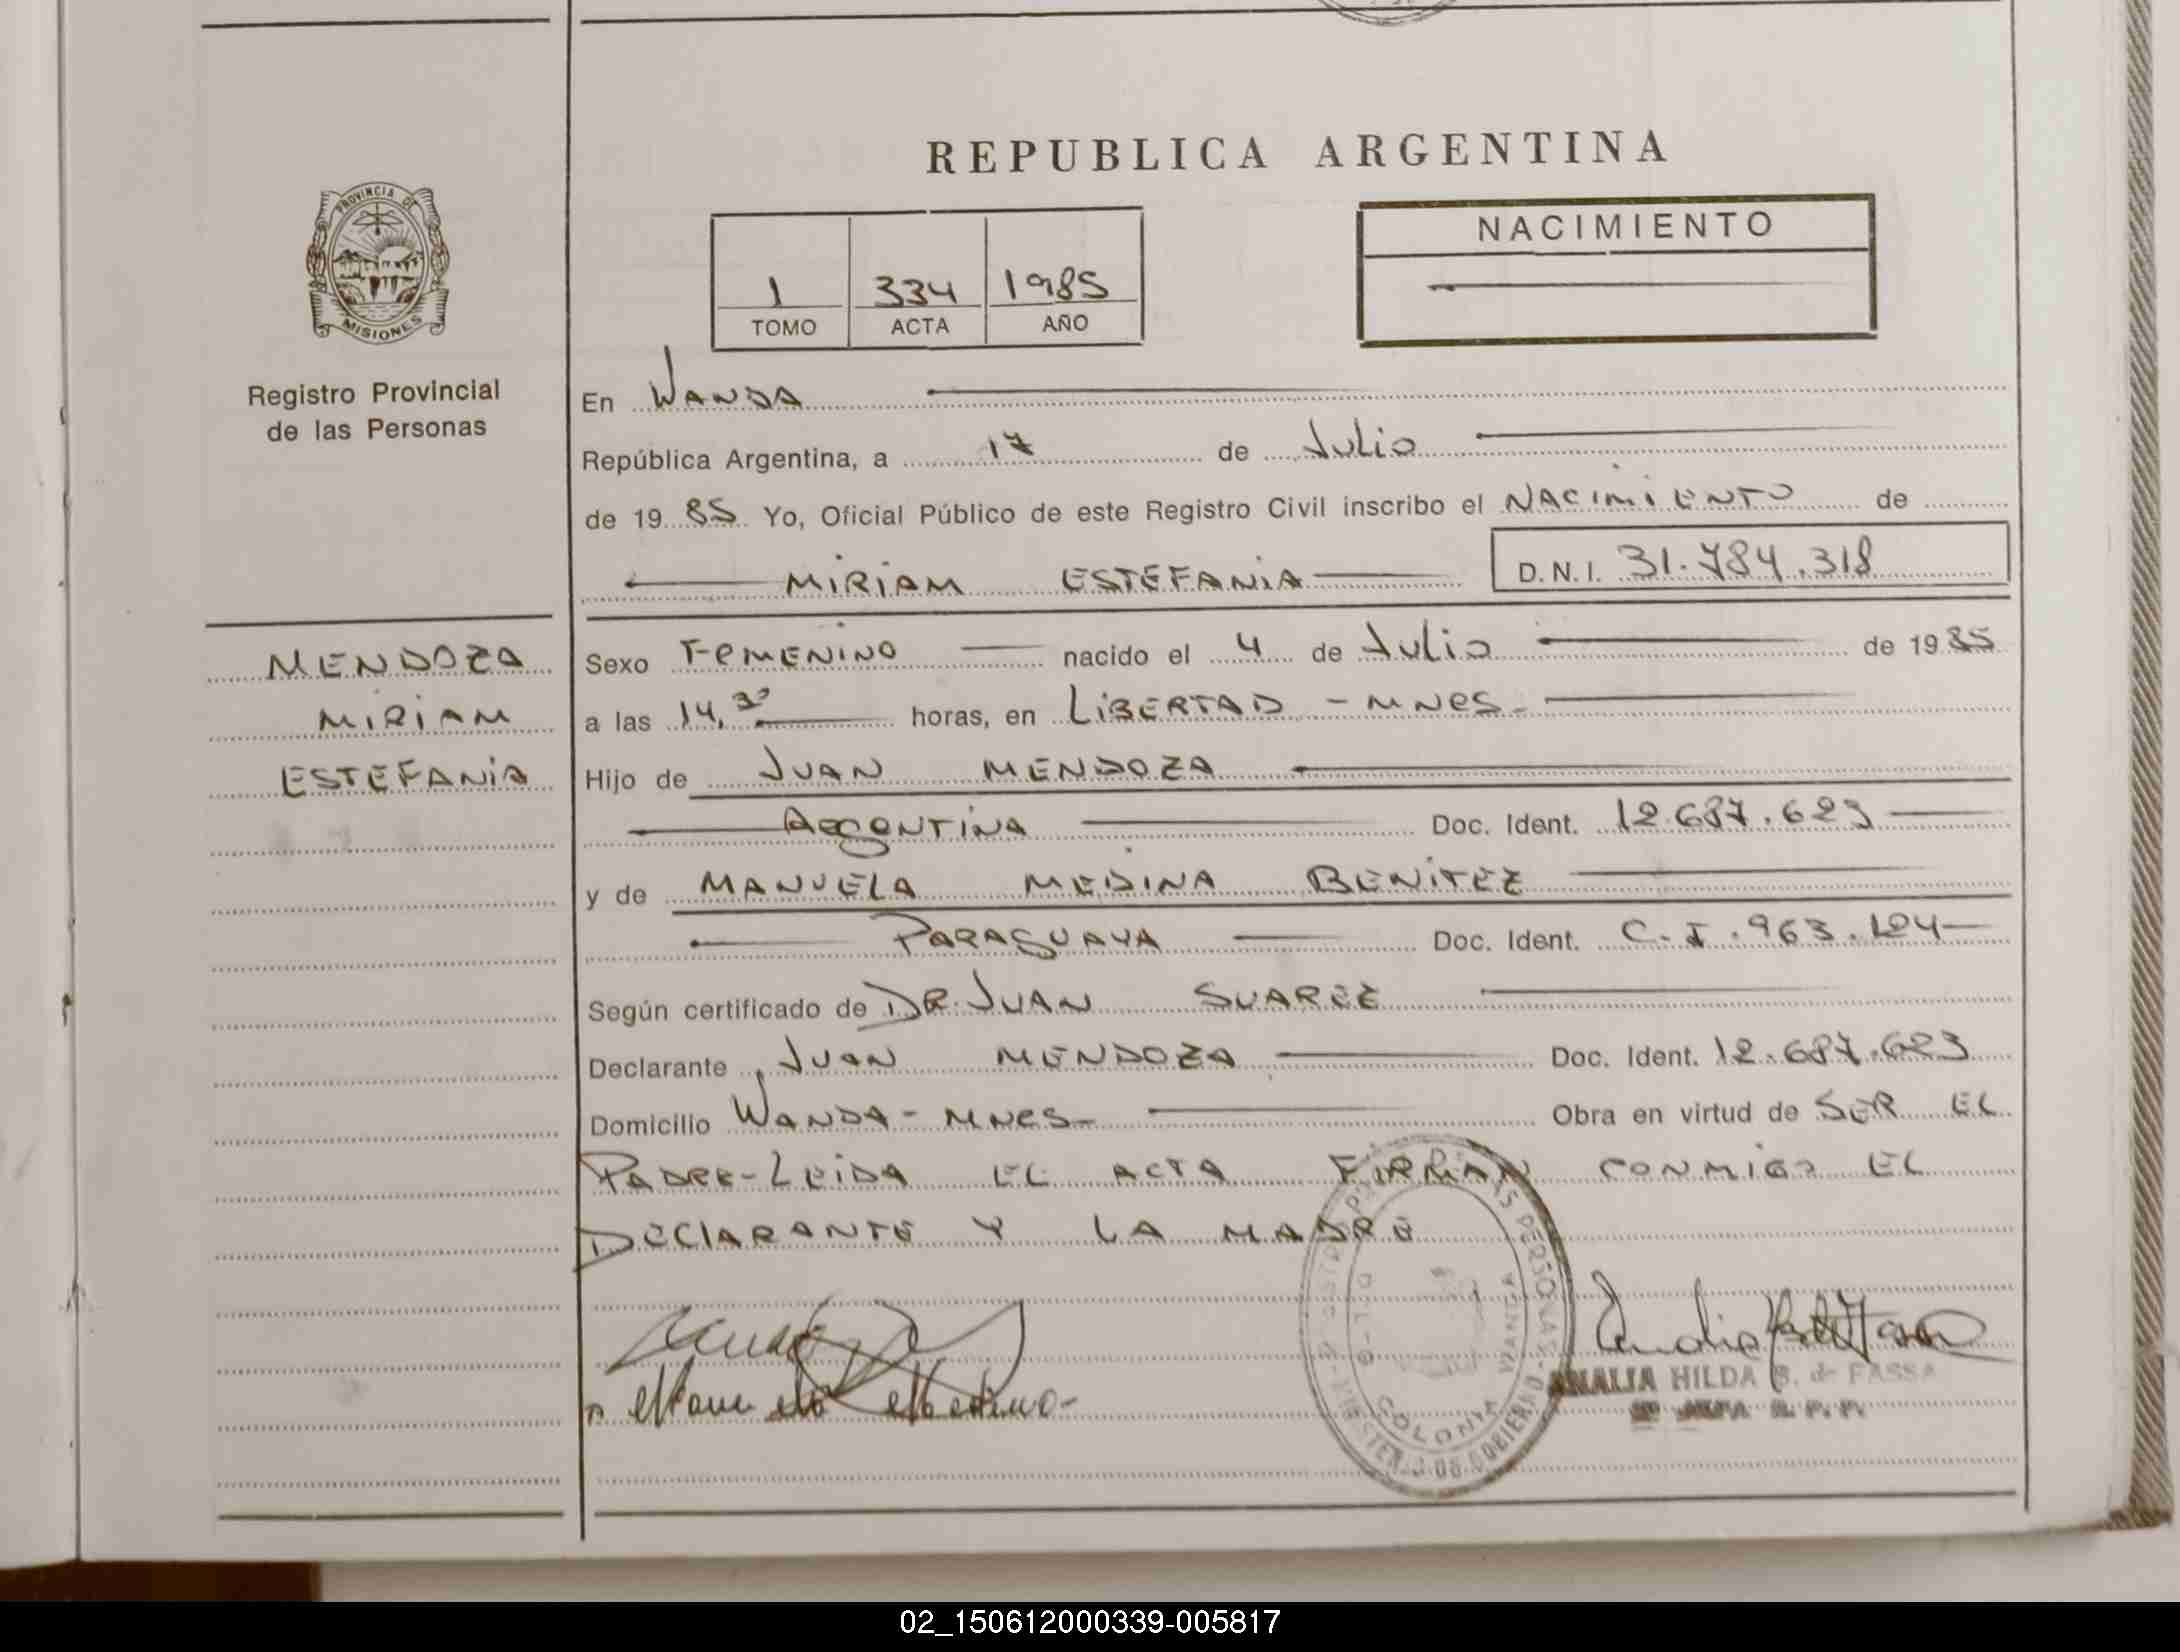 REPUBLICA ARGENTINA
PROVINCIA DE
MISIONES
Registro Provincial
de las Personas
1 334 1985
TOMO ACTA AÑO
NACIMIENTO
En WANDA
República Argentina, a 17 de Julio
de 1985 Yo, Oficial Público de este Registro Civil inscribo el NACIMIENTO de
MIRIAM ESTEFANIA D.N.I. 31.784.318
MENDOZA
MIRIAM
ESTEFANIA
Sexo FEMENINO nacido el 4 de Julio de 1985
a las 14,30 horas, en LIBERTAD - MNES-
Hijo de JUAN MENDOZA
ARGENTINA Doc. Ident. 12.687.623
y de MANUELA MEDINA BENITEZ
PARAGUAYA Doc. Ident. C.I.963.124
Según certificado de DR. JUAN SUAREZ
Declarante JUAN MENDOZA Doc. Ident. 12.687.623
Domicilio WANDA - MNES- Obra en virtud de SER EL
PADRE-LEIDA EL ACTA FIRMAN CONMIGO EL
DECLARANTE Y LA MADRE
Manuela Medina-
COLONIA WANDA
ANALIA HILDA B. de FASSA
02_150612000339-005817